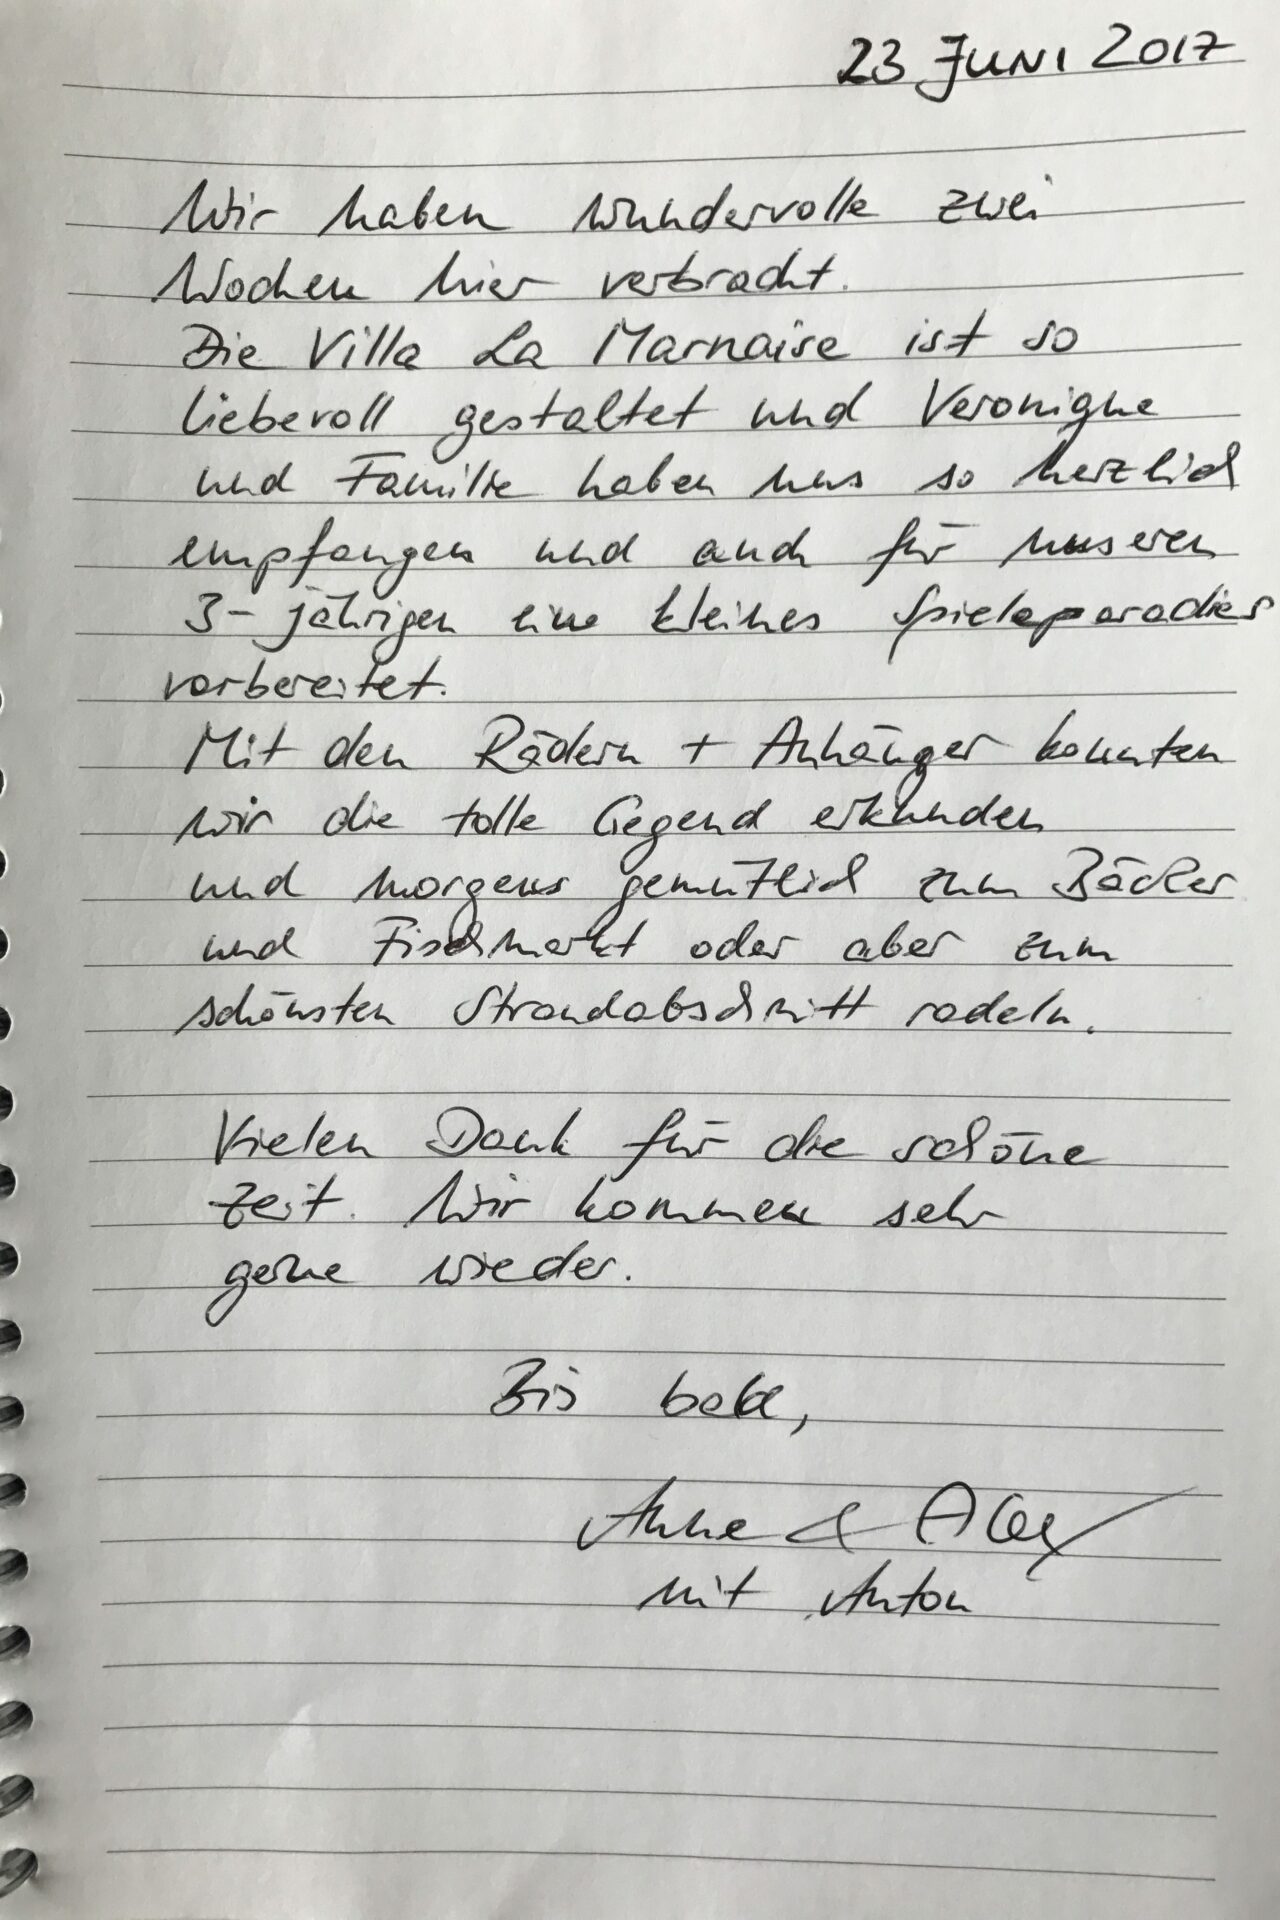 23 JUNI 2017
Wir haben wundervolle zwei
Wochen hier verbracht.
Die Villa La Marnaise ist so
liebevoll gestaltet und Veronique
und Familie haben uns so herzlich
empfangen und auch für unseren
3-jährigen eine kleines Spieleparadies
vorbereitet.
Mit den Rädern + Anhänger konnten
wir die tolle Gegend erkunden
und morgens gemütlich zum Bäcker
und Fischmarkt oder aber zum
schönsten Strandabschnitt radeln.
Vielen Dank für die schöne
Zeit. Wir kommen sehr
gerne wieder.
Bis bald,
Anne & Alex
mit Anton